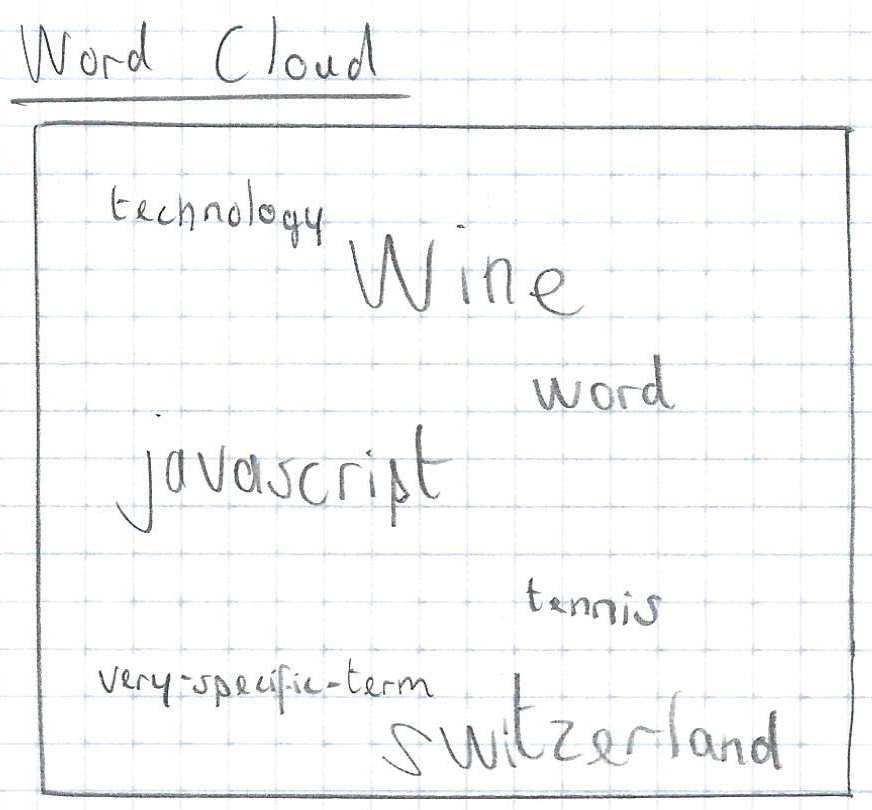 Word Cloud
technology
Wine
word
javascript
tennis
very-specific-term
switzerland